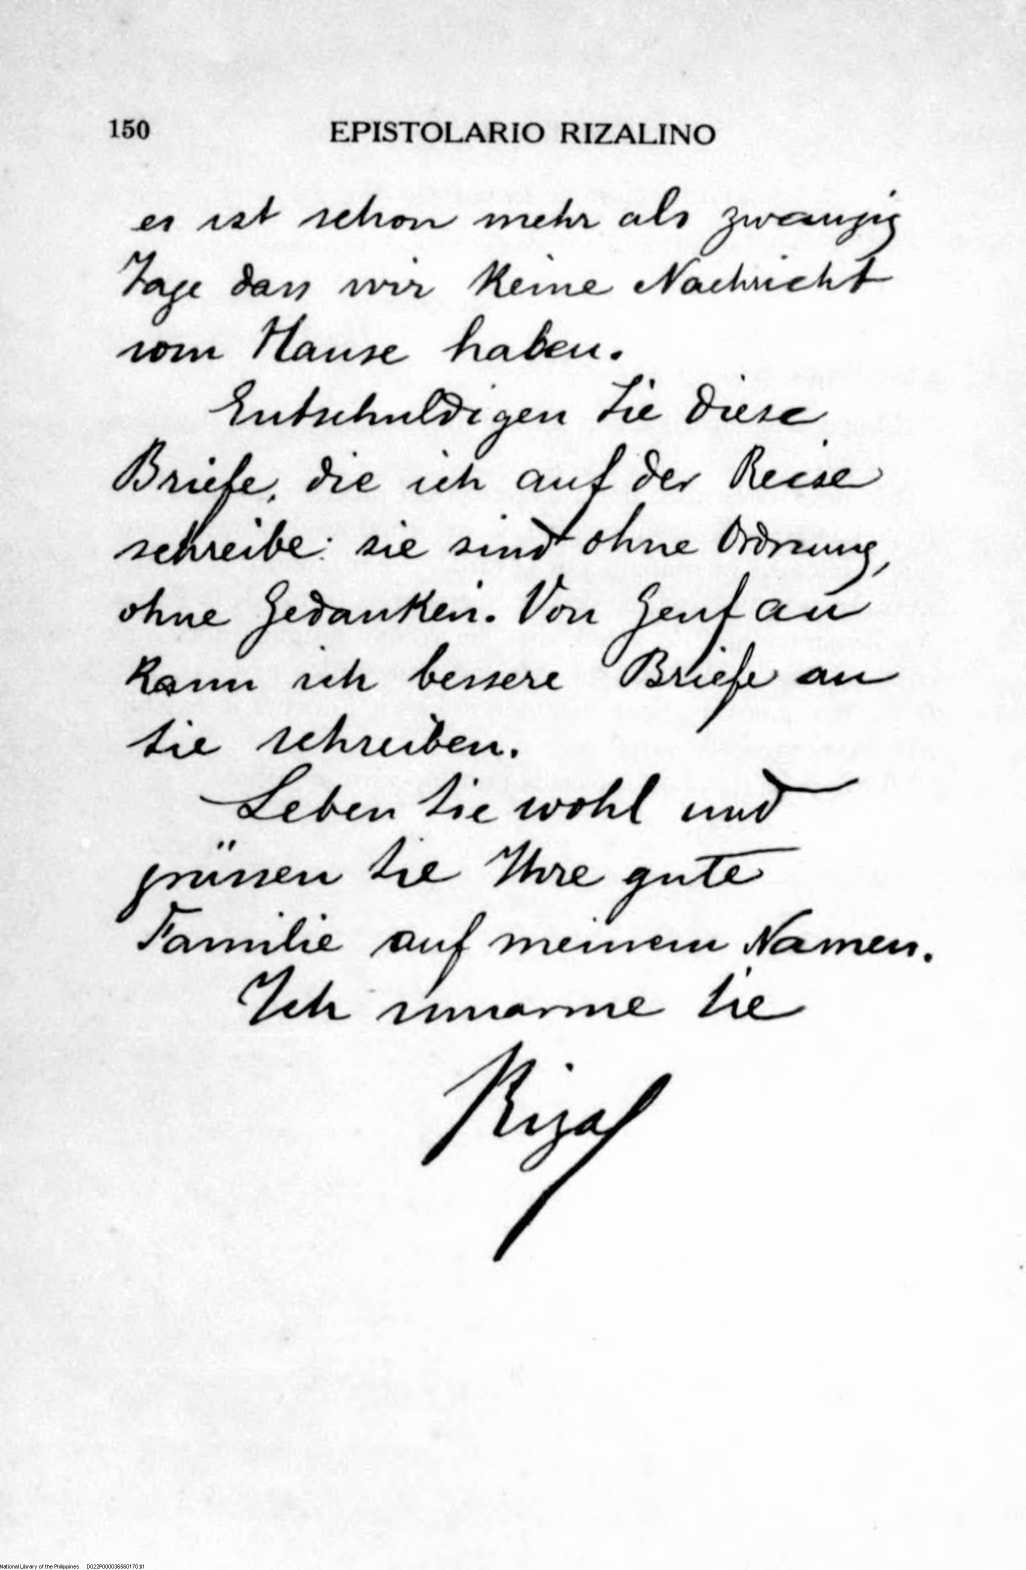 150 EPISTOLARIO RIZALINO
es ist schon mehr als zwanzig
Tage dass wir keine Nachricht
vom Hause haben.
Entschuldigen Sie diese
Briefe, die ich auf der Reise
schreibe: sie sind ohne Ordnung,
ohne Gedanken. Von Genf an
kann ich bessere Briefe an
Sie schreiben.
Leben Sie wohl und
grüssen Sie Ihre gute
Familie auf meinem Namen.
Ich umarme Sie
Rizal
National Library of the Philippines